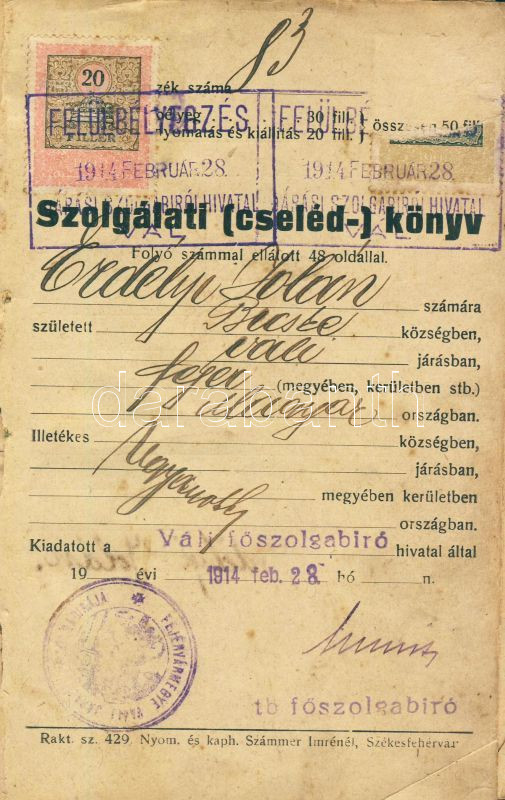 83
20
FILLER
zék. száma
bélyeg 30 fill.
nyomatás és kiállítás 20 fill. } összesen 50 fill.
FELÜLBÉLYEGZÉS FELÜLBÉ
1914 FEBRUÁR 28. 1914 FEBRUÁR 28.
JÁRÁSI SZOLGABIRÓI HIVATAL JÁRÁSI SZOLGABIRÓI HIVATAL
VÁL VÁL
Szolgálati (cseléd-) könyv
Folyó számmal ellátott 48 oldállal.
Erdélyi Jolán számára
született Bicske községben,
váli járásban,
fejér (megyében, kerületben stb.)
Magyar országban.
Illetékes községben,
járásban,
Ugyanott megyében kerületben
országban.
Kiadatott a Váli főszolgabiró hivatal által
19 évi 1914 feb. 28. hó n.
FEJÉRVÁRMEGYE VÁLI
tb főszolgabiró
Rakt. sz. 429. Nyom. és kaph. Számmer Imrénél, Székesfehérvár
darabanth